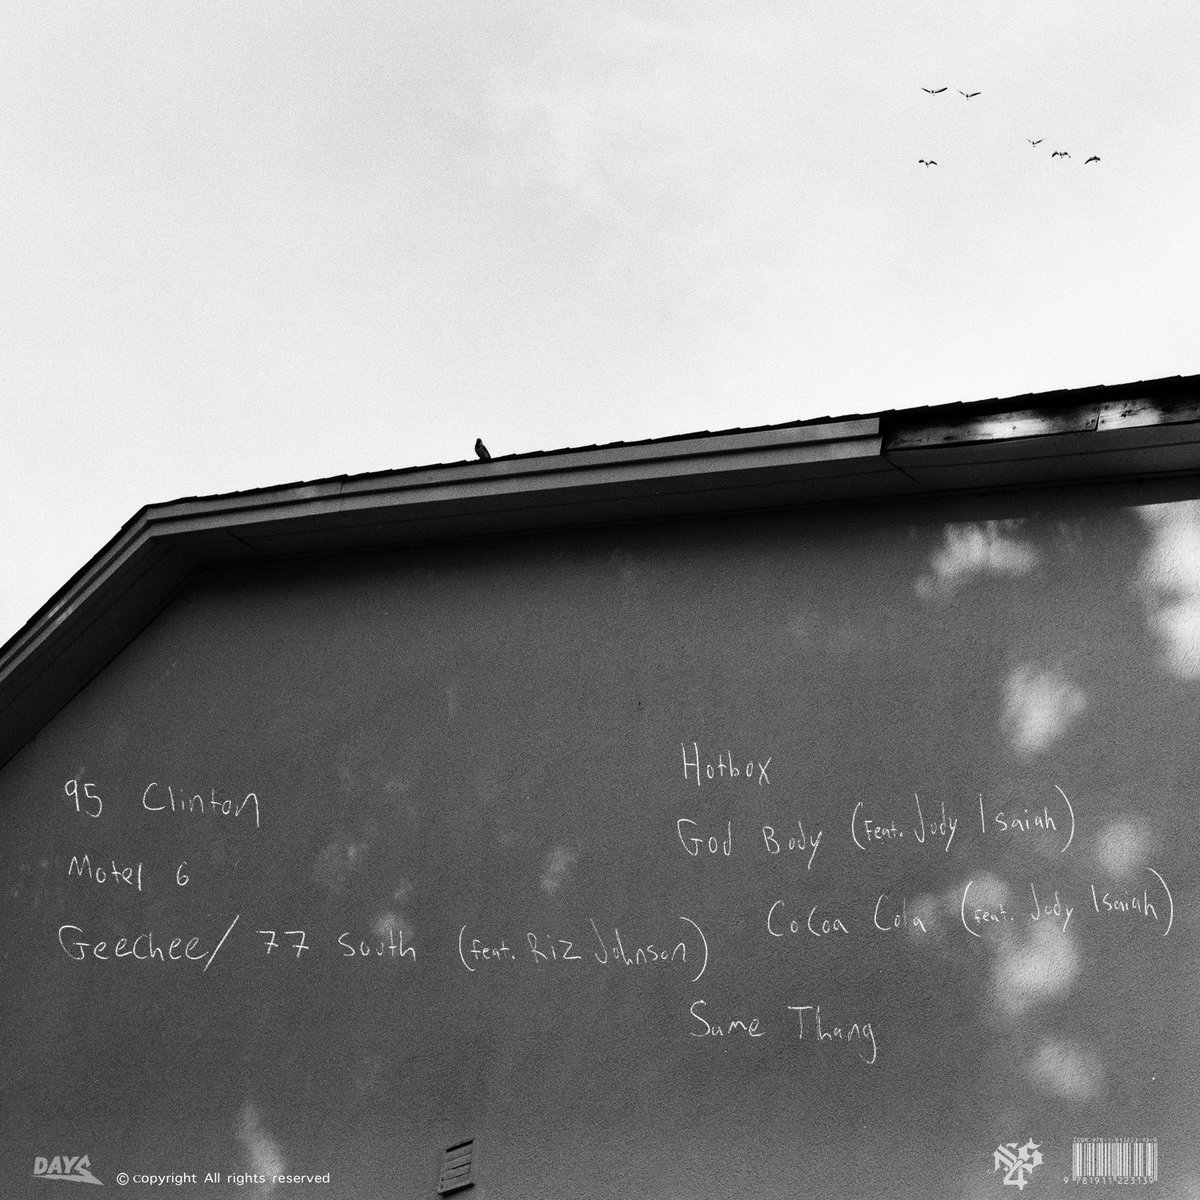 95 Clinton
Motel 6
Geechee/ 77 South (feat. Riz Johnson)
Hotbox
God Body (feat. Jody Isaiah)
Cocoa Cola (feat. Jody Isaiah)
Same Thang
DAYS
© Copyright All rights reserved
9 781911 223139